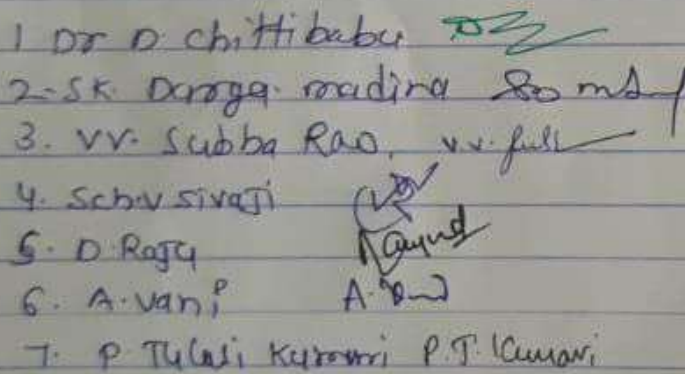 1 Dr D. Chittibabu
2. SK. Daroga. madina
3. VV. Subba Rao, v.v. full
4. Sch.V Sivaji
5. D. Raju
6. A. Vani A.
7. P. Tulasi Kumari P.T. Kumari